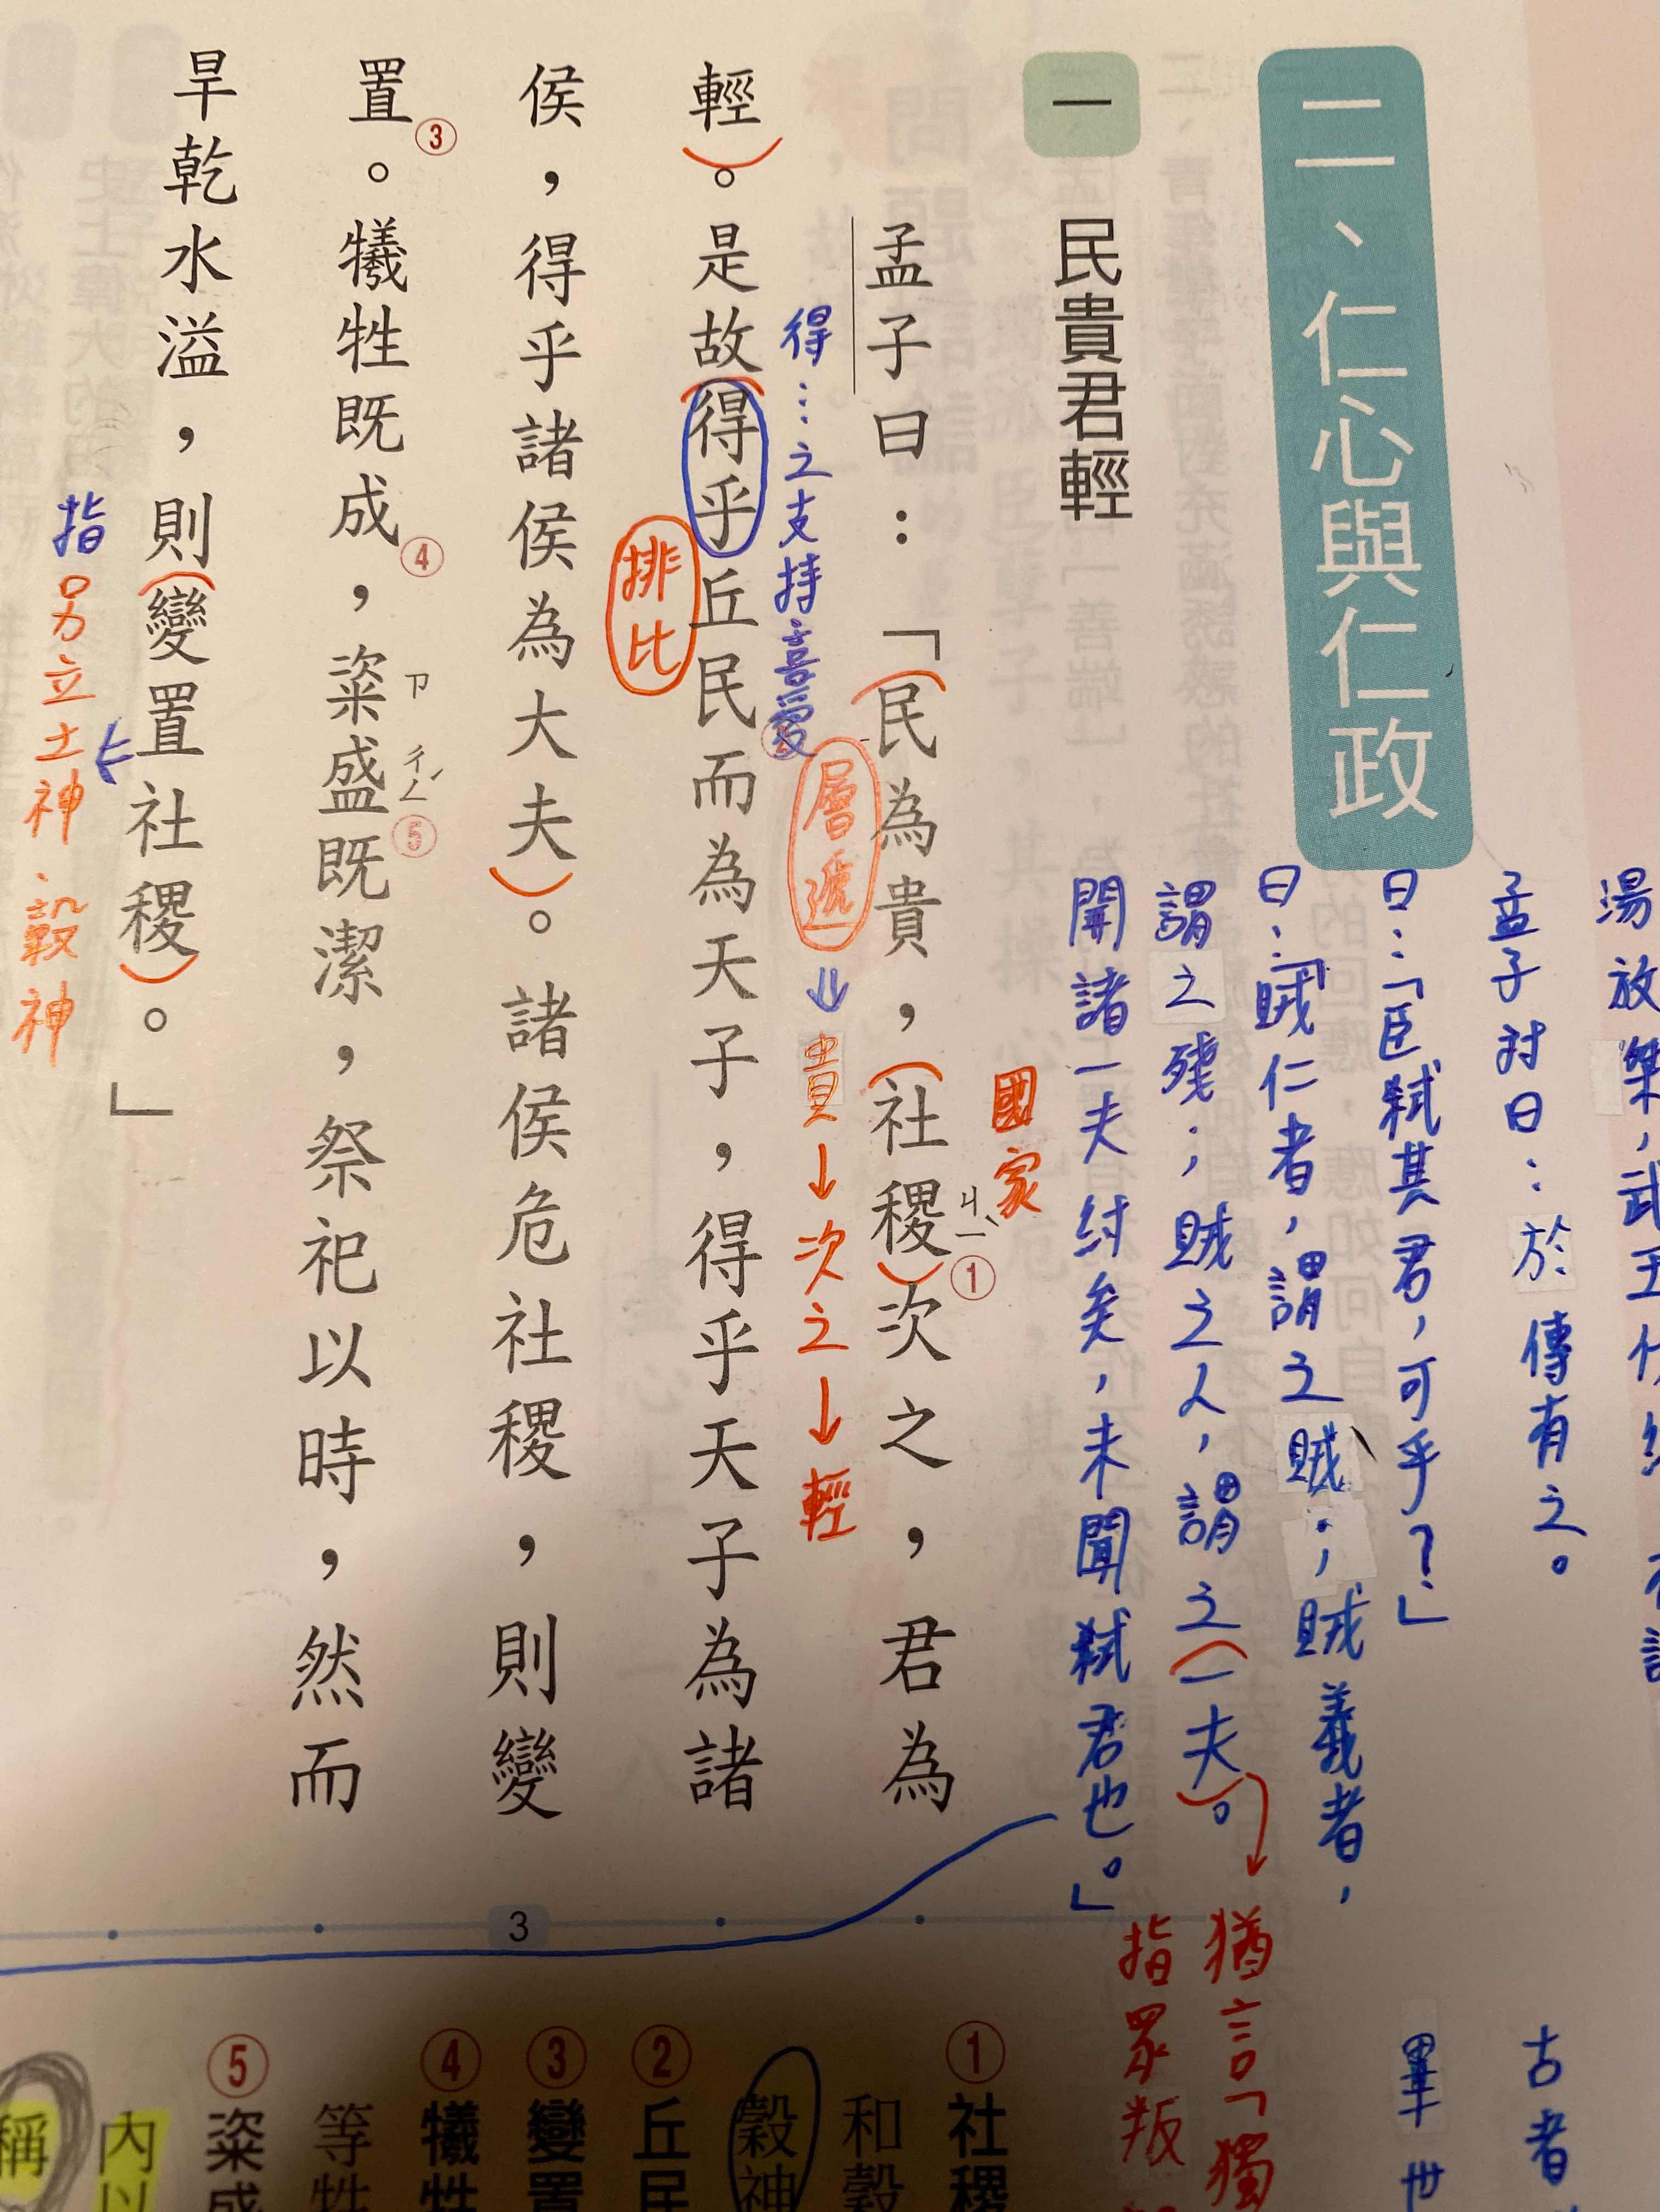 湯放桀，武王伐
孟子對曰：於傳有之。
曰：「臣弒其君，可乎？」
曰：「賊仁者，謂之賊；賊義者，
謂之殘；賊之人，謂之一夫。
聞諸一夫紂矣，未聞弒君也。」
猶言「獨
指眾叛
古者
畢世
二、仁心與仁政
一 民貴君輕
國家
孟子曰：「民為貴，社稷ㄐㄧˋ①次之，君為
得…之支持喜愛
層遞⇒貴→次之→輕
輕。是故得乎丘民②而為天子，得乎天子為諸
排比
侯，得乎諸侯為大夫。諸侯危社稷，則變
置③。犧牲既成④，粢ㄗ盛ㄔㄥˊ⑤既潔，祭祀以時，然而
旱乾水溢，則變置社稷。」
指另立土神、穀神
3
①社稷
和穀
穀神
②丘民
③變置
④犧牲
等牲
⑤粢盛
內以
稱